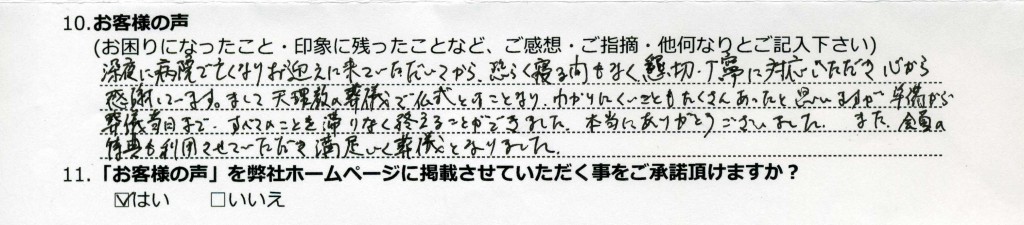 10.お客様の声
(お困りになったこと・印象に残ったことなど、ご感想・ご指摘・他何なりとご記入下さい)
深夜に病院で亡くなりお迎えに来ていただいてから、恐らく寝る間もなく懇切・丁寧に対応いただき心から
感謝しています。まして天理教の葬儀で仏式とはことなり、わかりにくいこともたくさんあったと思いますが、準備から
葬儀当日まで、すべてのことを滞りなく終えることができました。本当にありがとうございました。また、会員の
特典も利用させていただき満足いく葬儀となりました。
11.「お客様の声」を弊社ホームページに掲載させていただく事をご承諾頂けますか？
☑はい □いいえ